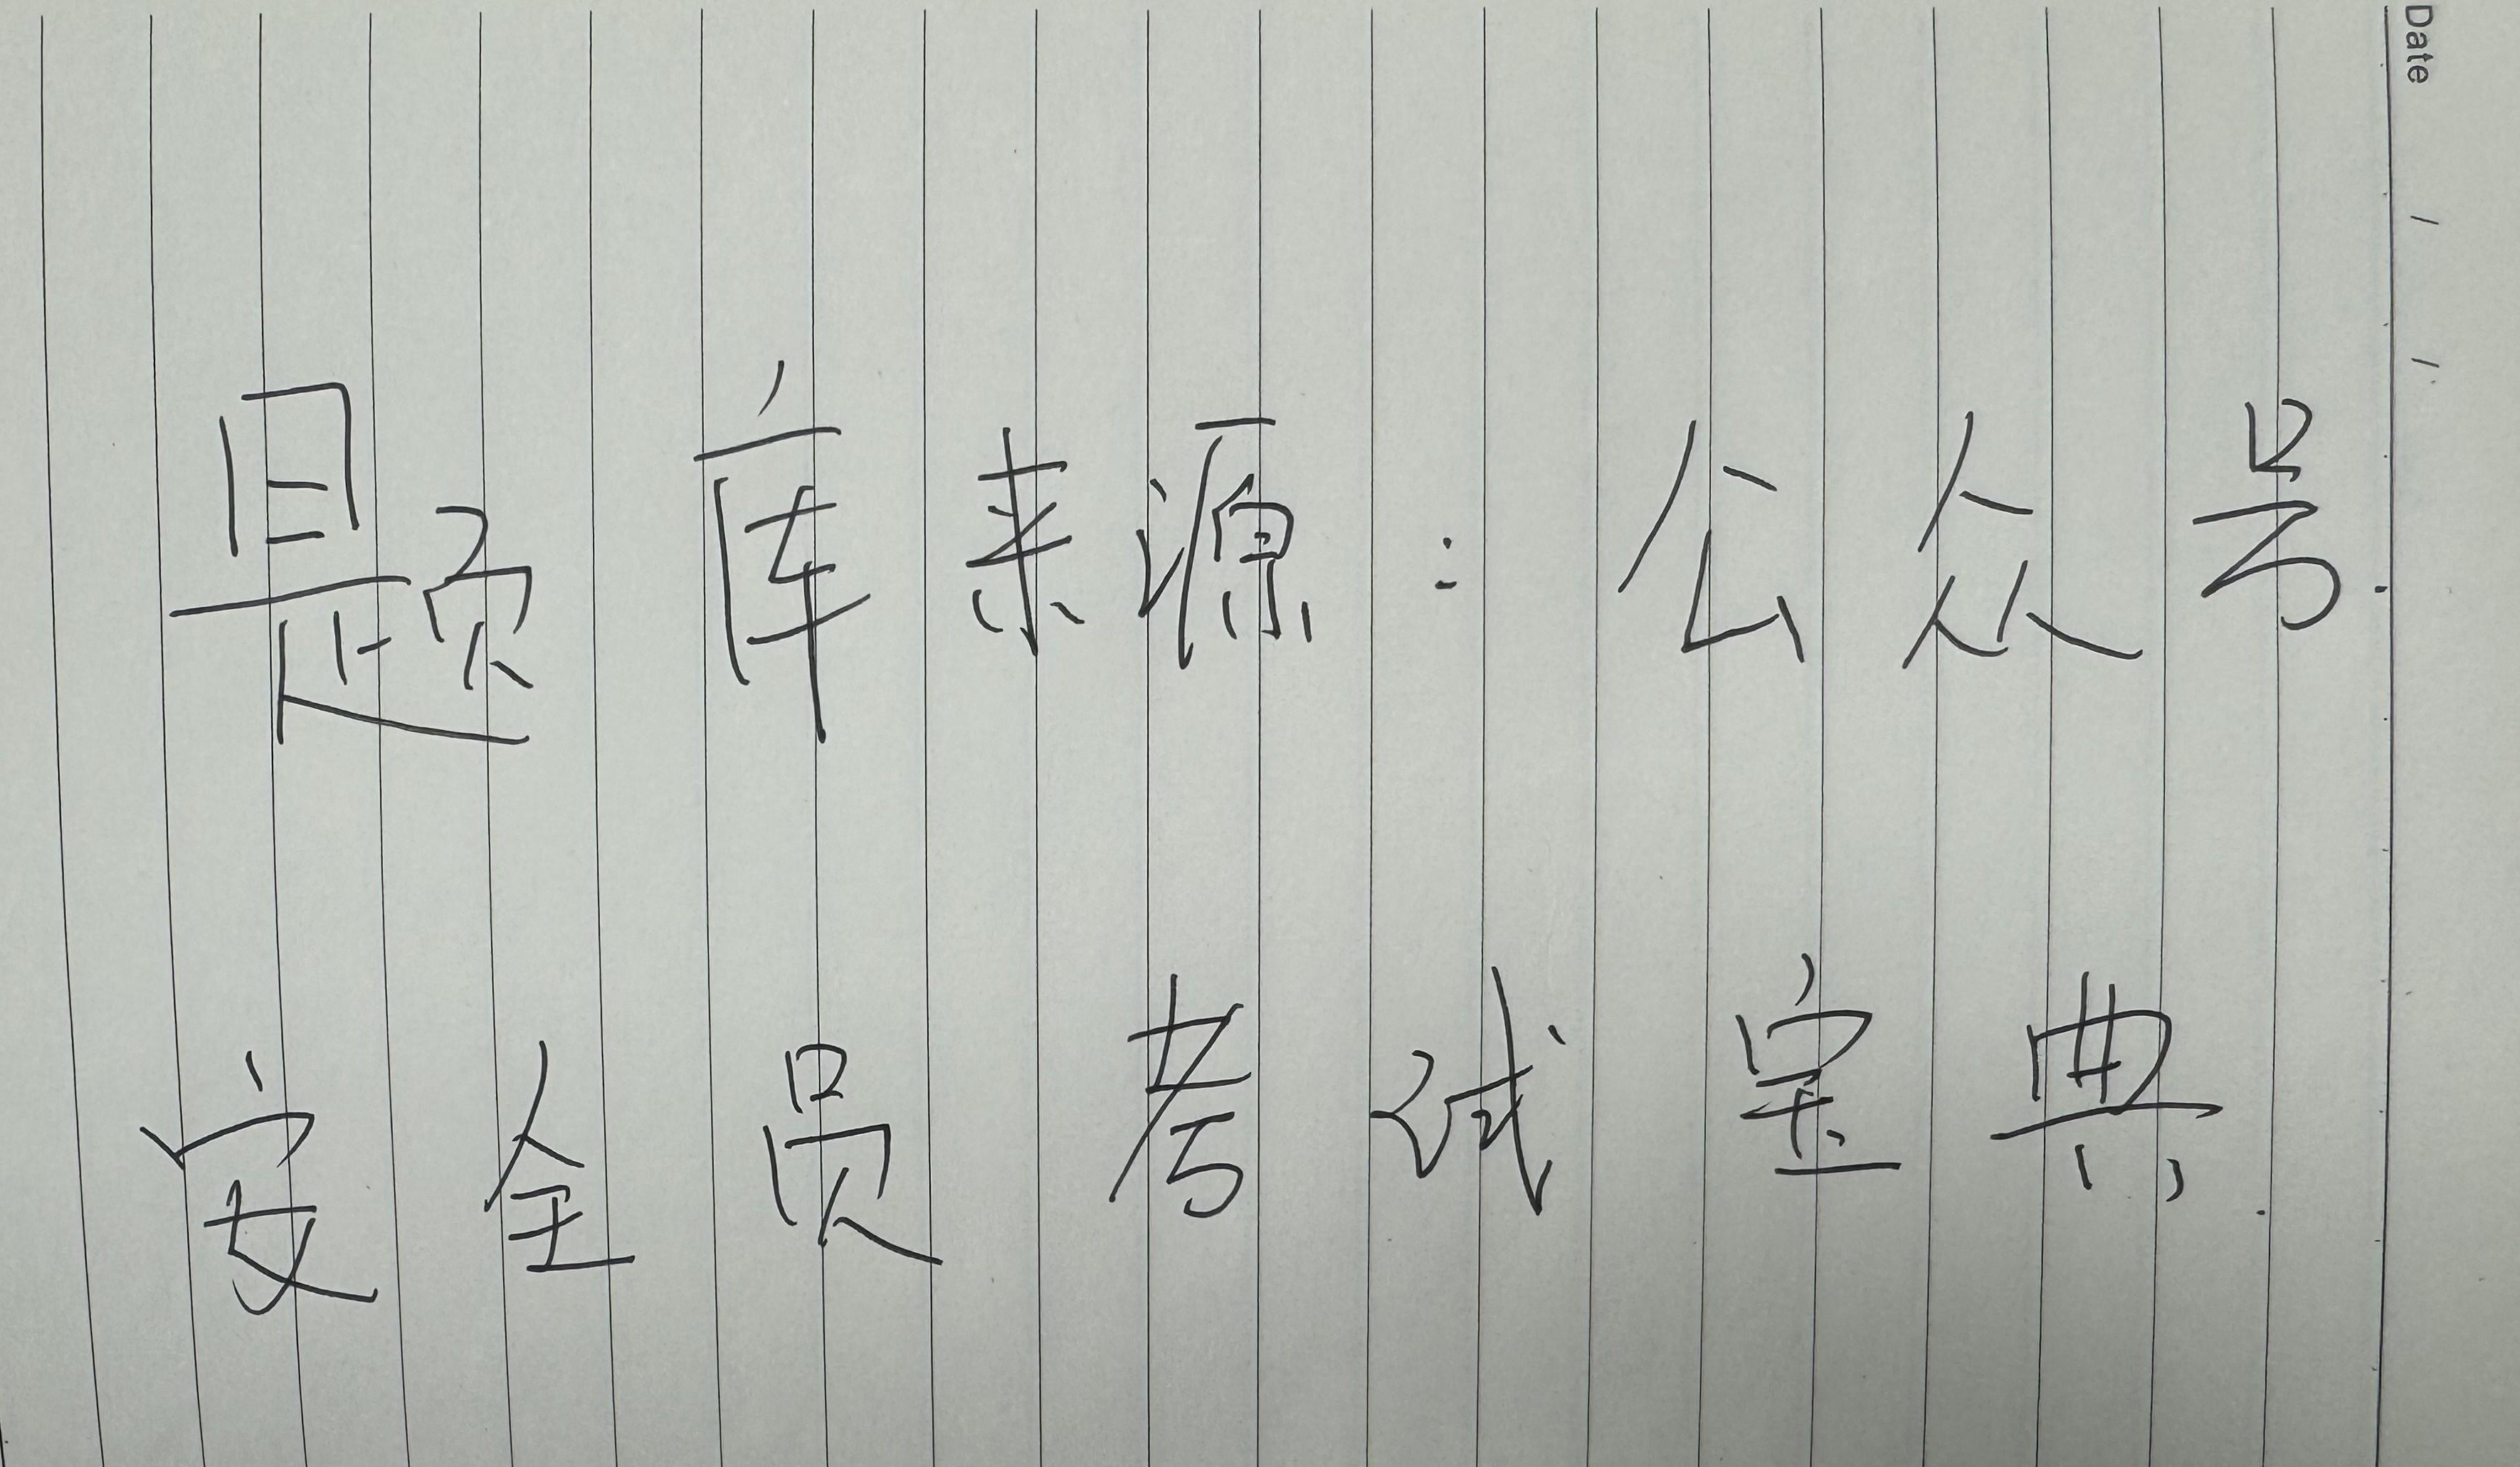 题库来源：公众号
安全员考试宝典
Date / /